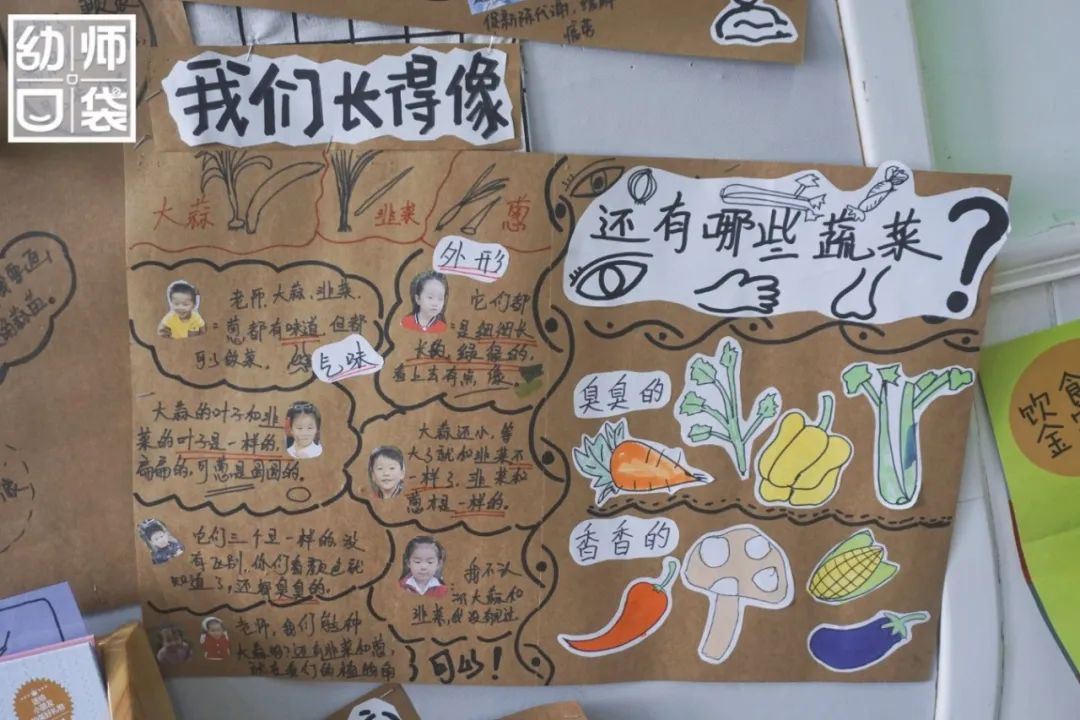 幼师口袋
促新陈代谢,缓解
我们长得像
大蒜
韭菜
葱
外形
气味
老师,大蒜、韭菜、
葱都有味道,但都
可以做菜。
它们都
是细细长
长的,绿绿的,
看上去有点像。
大蒜的叶子和韭
菜的叶子是一样的,
扁扁的,可葱是圆圆的。
大蒜还小,等
大了就和韭菜不
一样了,韭菜和
葱才是一样的。
它们三个是一样的,没
有区别,你们看颜色就
知道了,还都臭臭的。
我不认
识大蒜和
韭菜,我没见过
老师,我们能种
大蒜吗?还有韭菜和葱,
就在我们的植物角
可以!
还有哪些蔬菜?
臭臭的
香香的
饮食